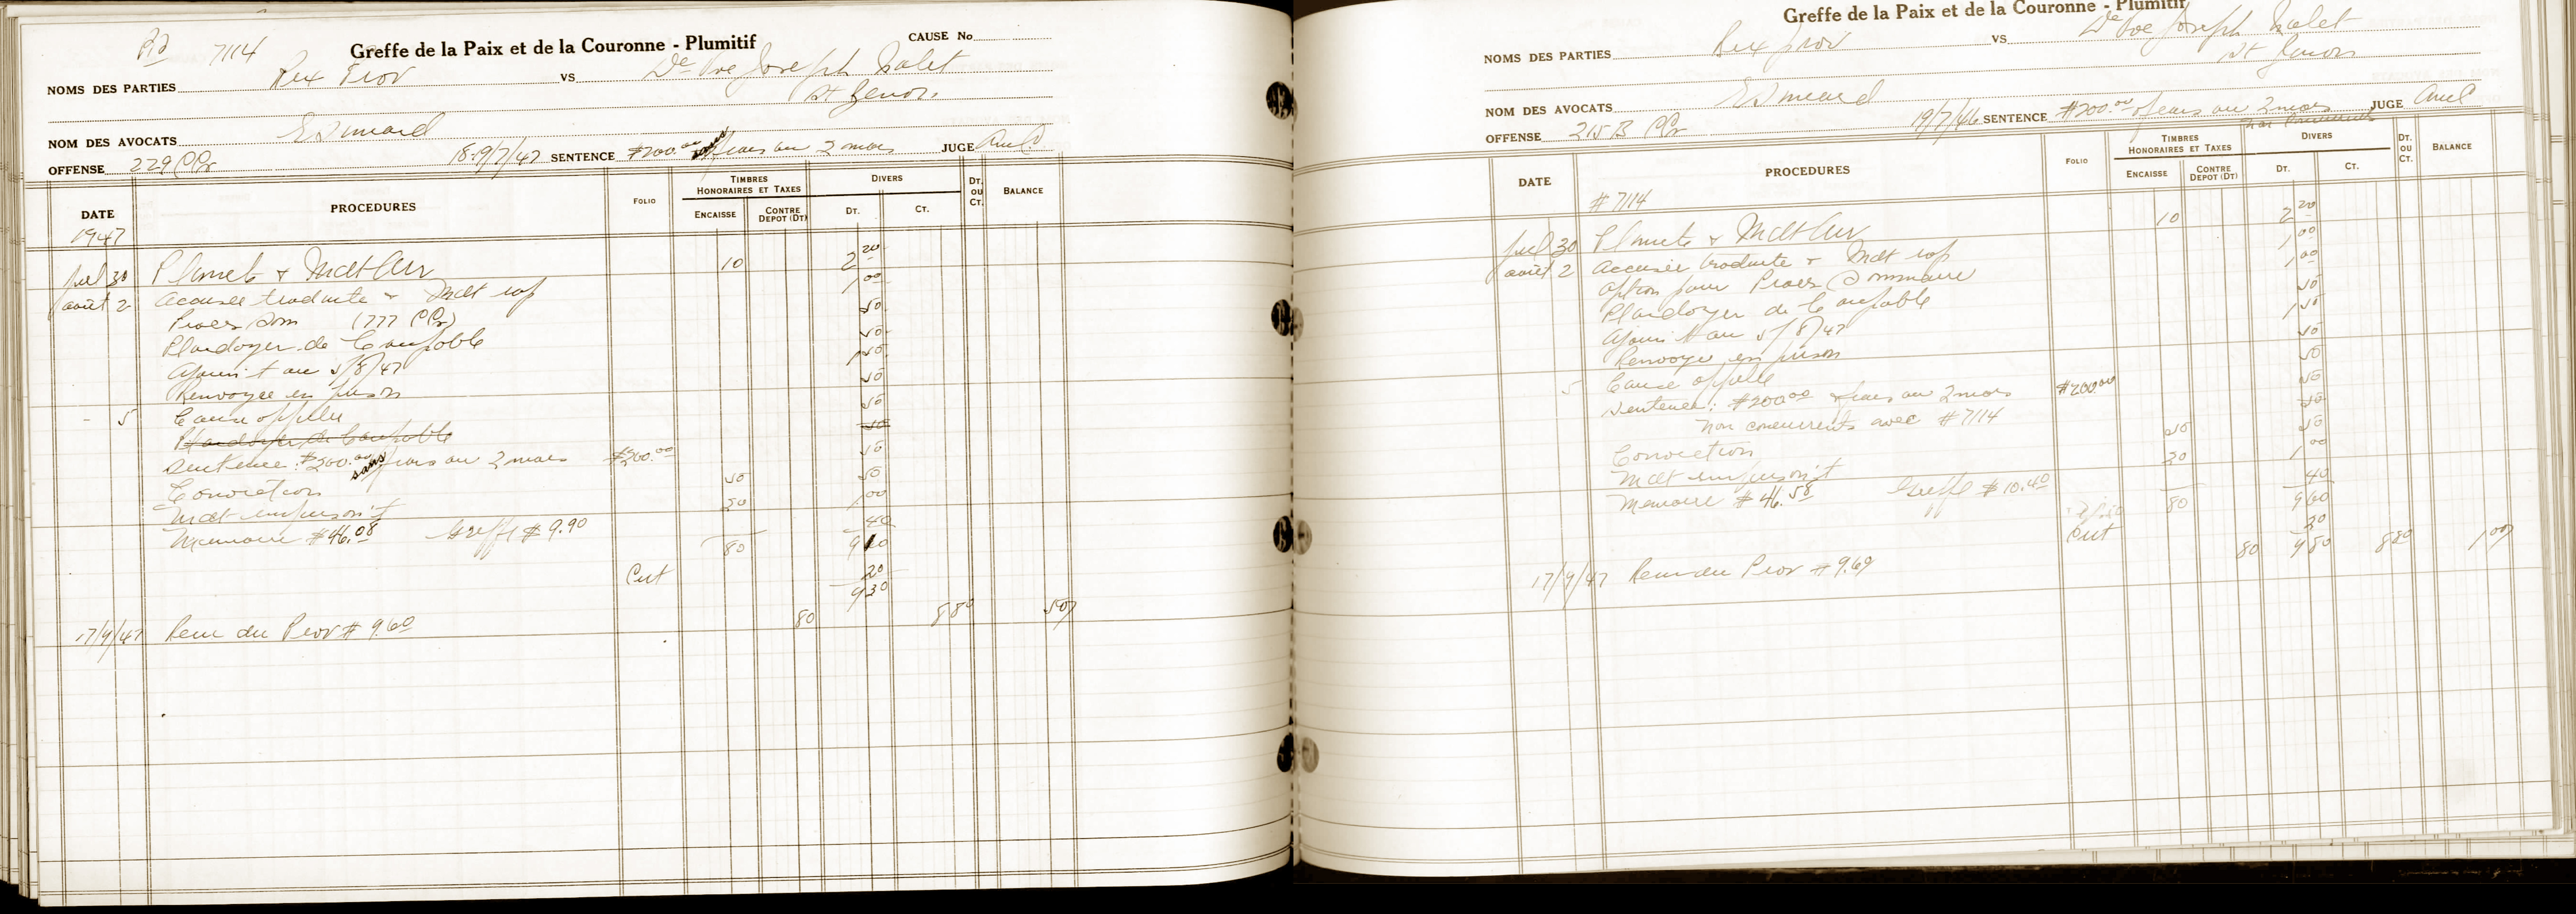 7114 Greffe de la Paix et de la Couronne - Plumitif CAUSE No
NOMS DES PARTIES Rex Prov VS De Vve Joseph
St
NOM DES AVOCATS E Simard
OFFENSE 229 CCr 18:19/7/47 SENTENCE $200.00 sans frais ou 2 mois JUGE
DATE PROCEDURES FOLIO TIMBRES HONORAIRES ET TAXES ENCAISSE CONTRE DEPOT (DT) DIVERS DT. CT. DT. OU CT. BALANCE
1947
Juil 30 Plainte & Mdt Arr 10 2 20
août 2 Accusée traduite & Mdt rap 1 00
Proces Som (777 CCr) 50
Plaidoyer de Coupable 50
Ajourn't au 5/8/47 1 50
Renvoyée en prison 50
- 5 Cause appelée 50
Plaidoyer de Coupable 50
Sentence: $200.00 sans frais ou 2 mois $200.00 50
Conviction 50 50
Mdt emprison't 1 00
Memoire $46.08 Greffe $9.90 40
80 9 10
Cert 20
9 30
17/9/47 Recu du Prov # 9.60 80 8 80 50
Greffe de la Paix et de la Couronne - Plumitif
NOMS DES PARTIES Rex Prov VS De Vve Joseph
St
NOM DES AVOCATS E Simard
OFFENSE 215 B CCr 19/7/46 SENTENCE $200.00 & frais ou 2 mois JUGE
DATE PROCEDURES FOLIO TIMBRES HONORAIRES ET TAXES ENCAISSE CONTRE DEPOT (DT) DIVERS DT. CT. DT. OU CT. BALANCE
# 7114
Juil 30 Plainte & Mdt Arr 10 2 20
août 2 Accusée traduite & Mdt rap 1 00
Option pour Proces Sommaire 1 00
Plaidoyer de Coupable 50
Ajourn't au 5/8/47 1 50
Renvoyée en prison 50
5 Cause appelée 50
Sentence: $200.00 & frais ou 2 mois $200.00 50
Non concurrents avec # 7114
Conviction 50 50
Mdt emprison't 20 1 00
Memoire $46.58 Greffe $10.40 40
80 9 60
Cert 20
17/9/47 Recu du Prov # 9.60 80 9 80 8 80 1 00